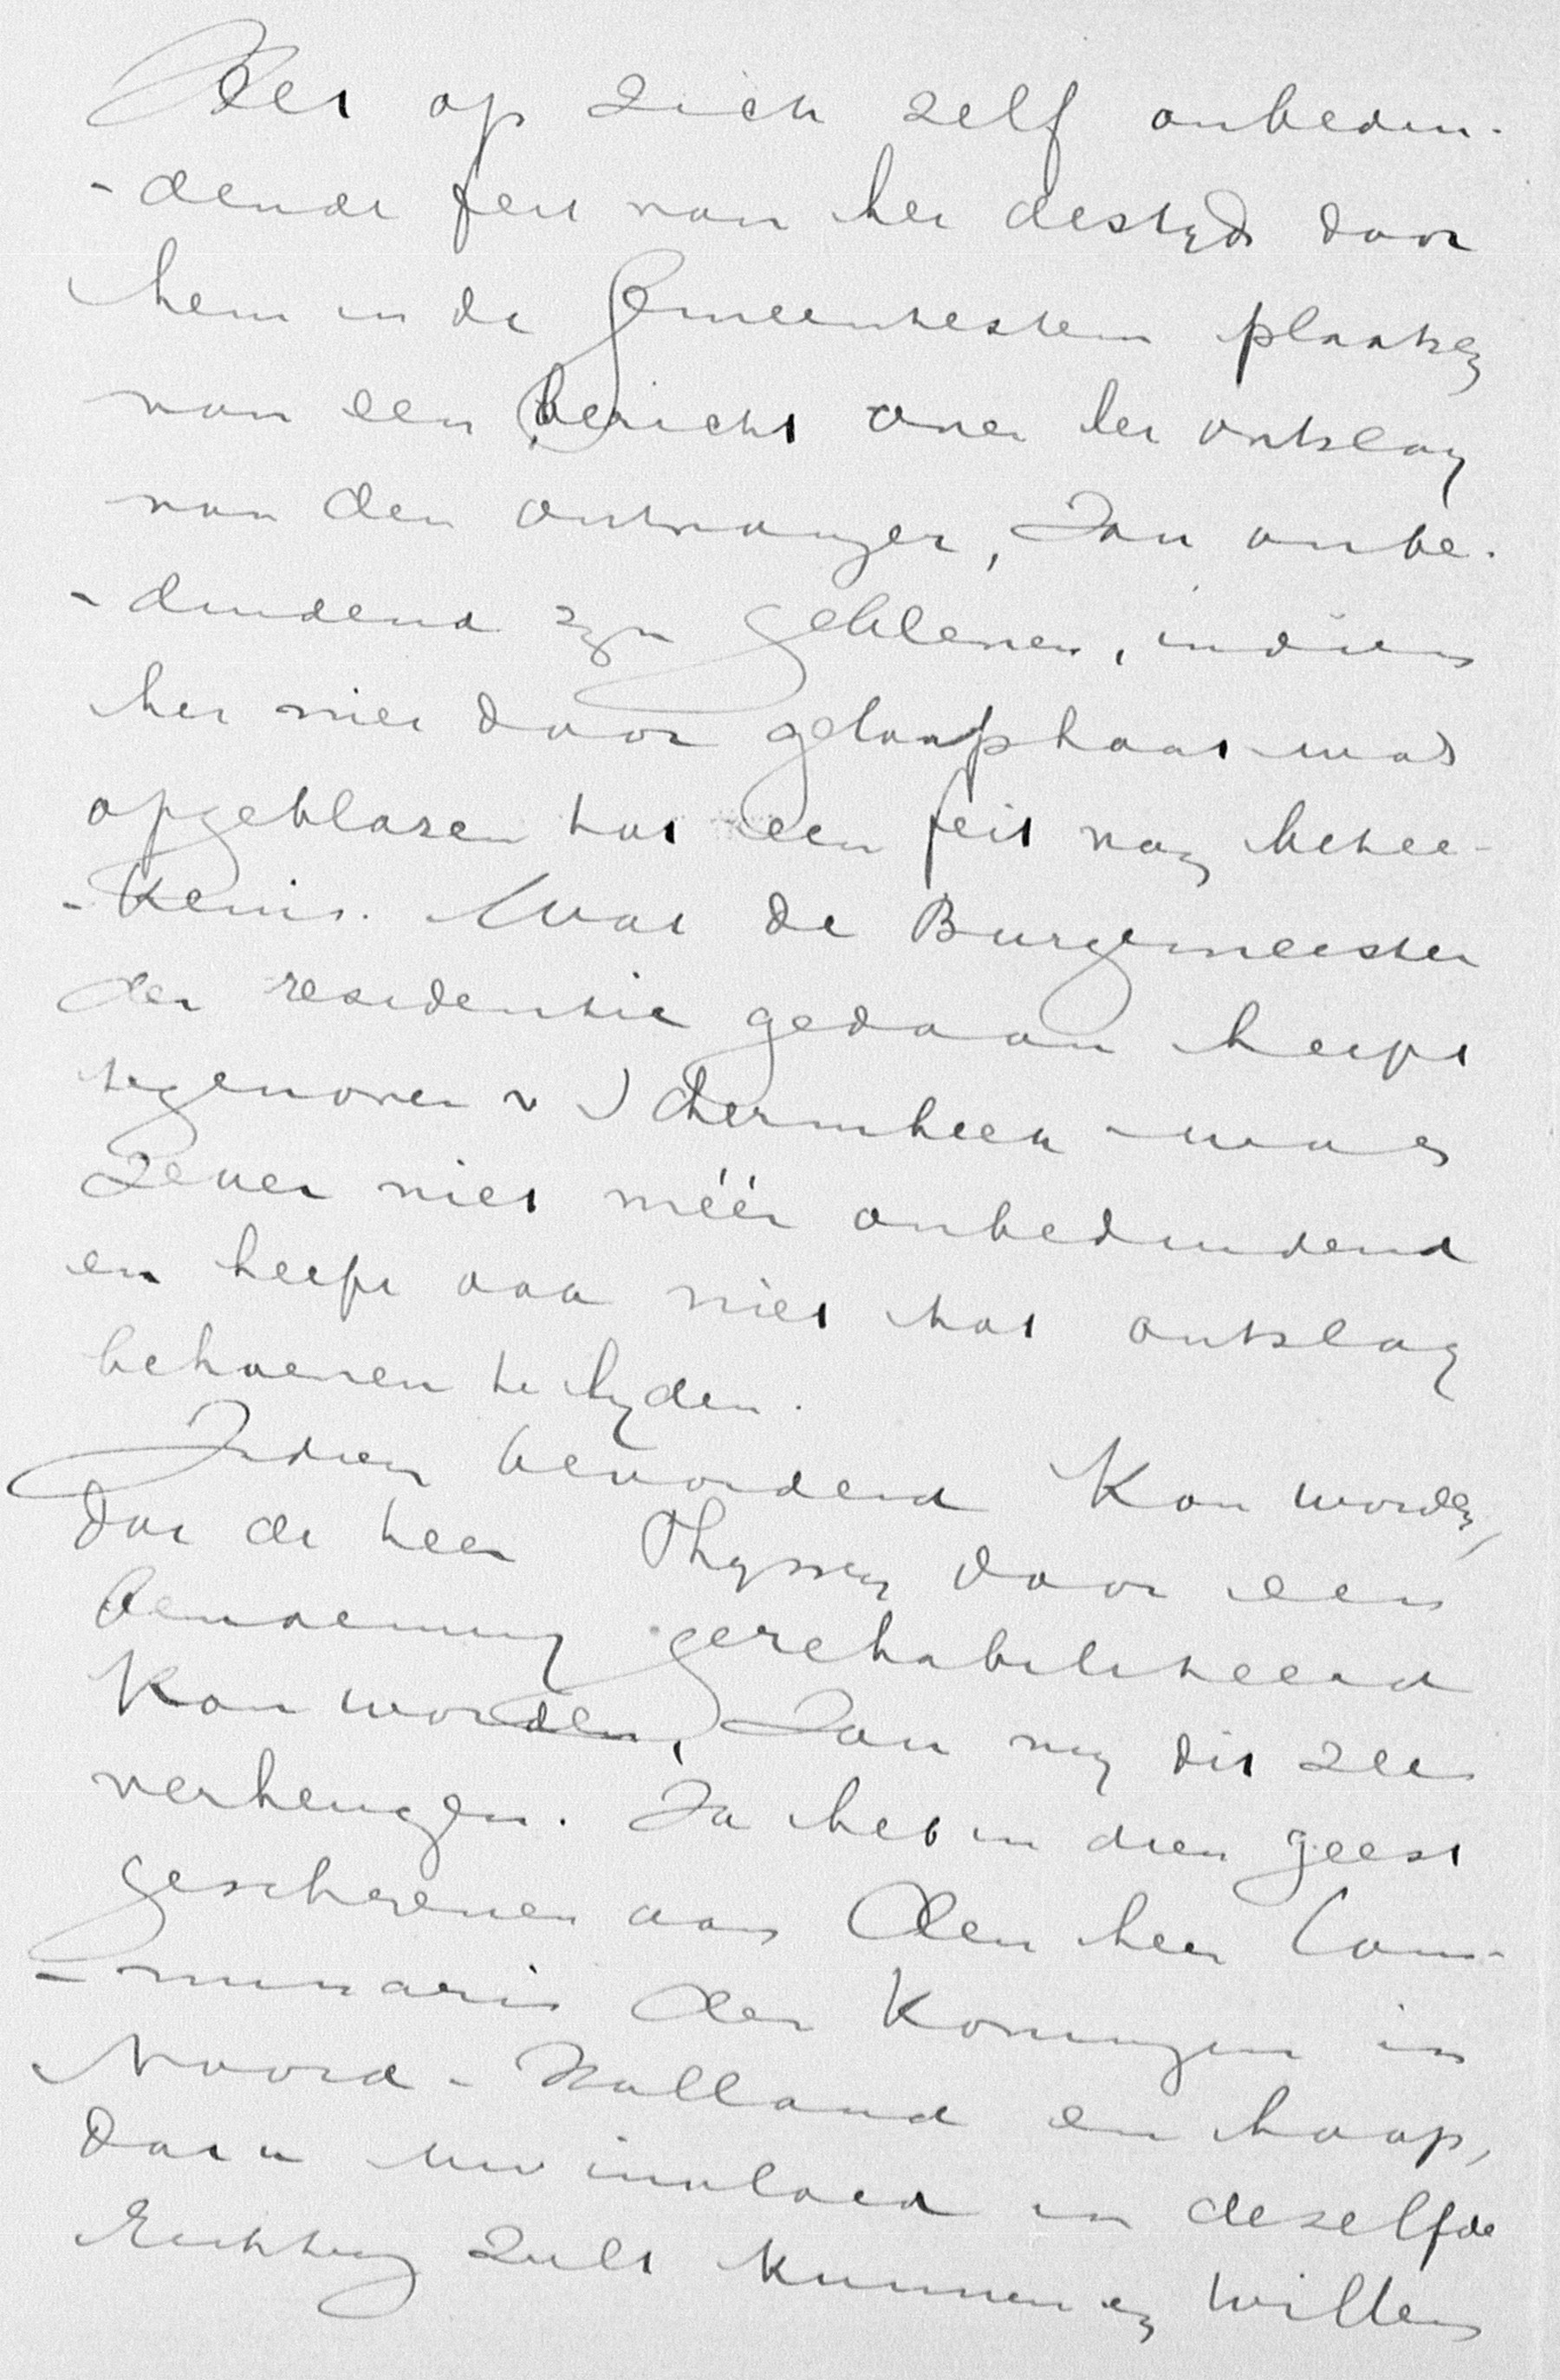 Het op zich zelf onbedui-
-dende feit van het destyds door
hem in de Gemeentestem plaatsen
van een bericht over het ontslag
van den ontvanger, zou onbe-
-duidend zyn gebleven, indien
het niet door geloophaat was
opgeblazen tot een feit van betee-
-kenis. Wat de Burgemeester
der residentie gedaan heeft
tegenover v Schermbeek was
zeker niet méér onbeduidend
en heeft ook niet tot ontslag
behoeven te lyden.
Indien bevorderd kon worden,
dat de heer Thyssen door een
benoeming gerehabiliteerd
kon worden, zou my dit zeer
verheugen. Ik heb in dien geest
geschreven aan den heer Com-
-missaris der Koningin in
Noord-Holland en hoop,
dat u uw invloed in dezelfde
richting zult kunnen en willen